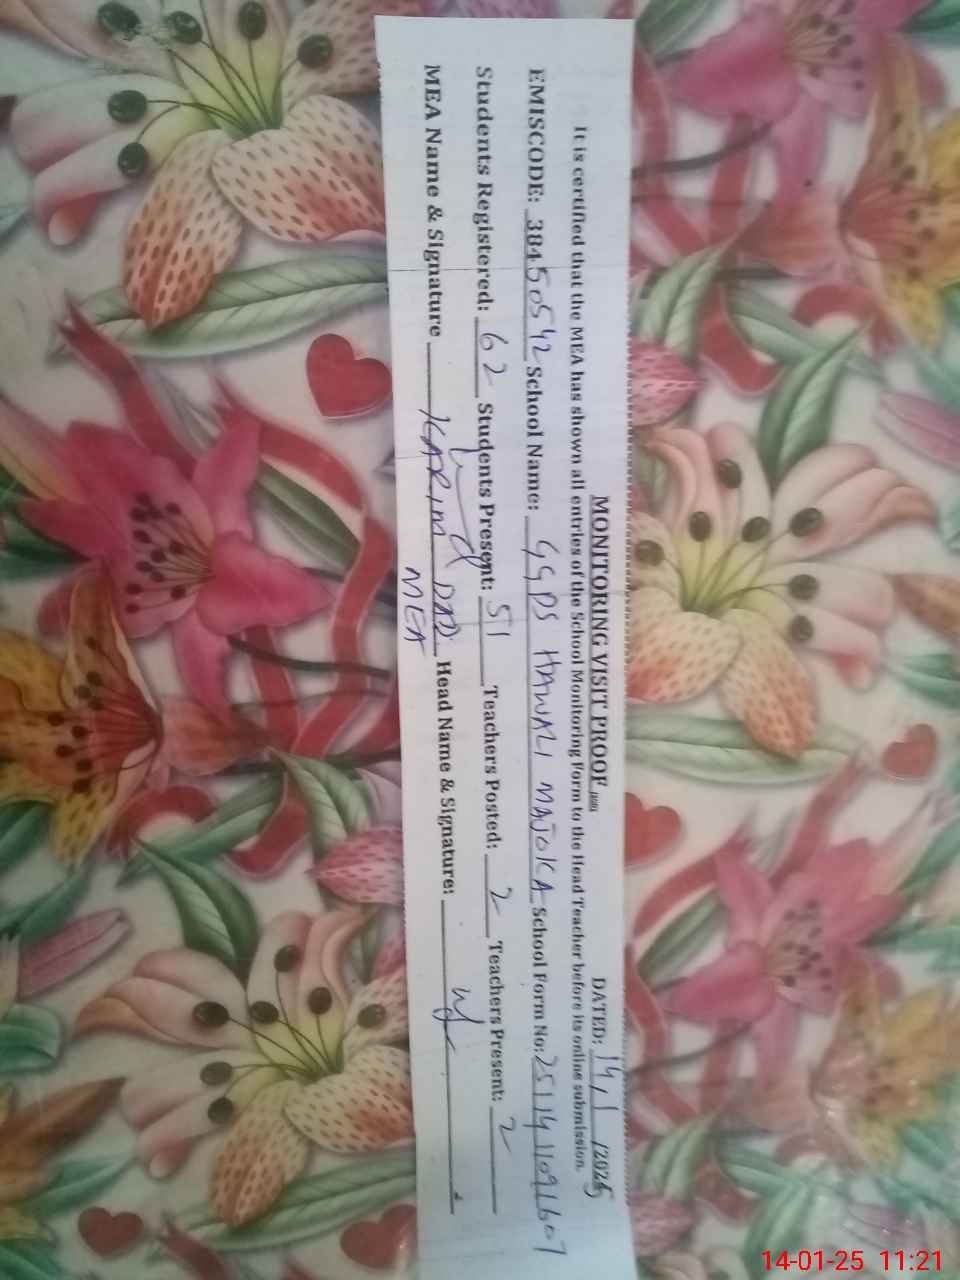 MONITORING VISIT PROOF DATED: 14/1/2025
It is certified that the MEA has shown all entries of the School Monitoring Form to the Head Teacher before its online submission.
EMISCODE: 38450542 School Name: GGPS HAWALI MAJOKA School Form No: 25114110911607
Students Registered: 62 Students Present: 51 Teachers Posted: 2 Teachers Present: 2
MEA Name & Signature KARIM DAD Head Name & Signature:
MEA
14-01-25 11:21